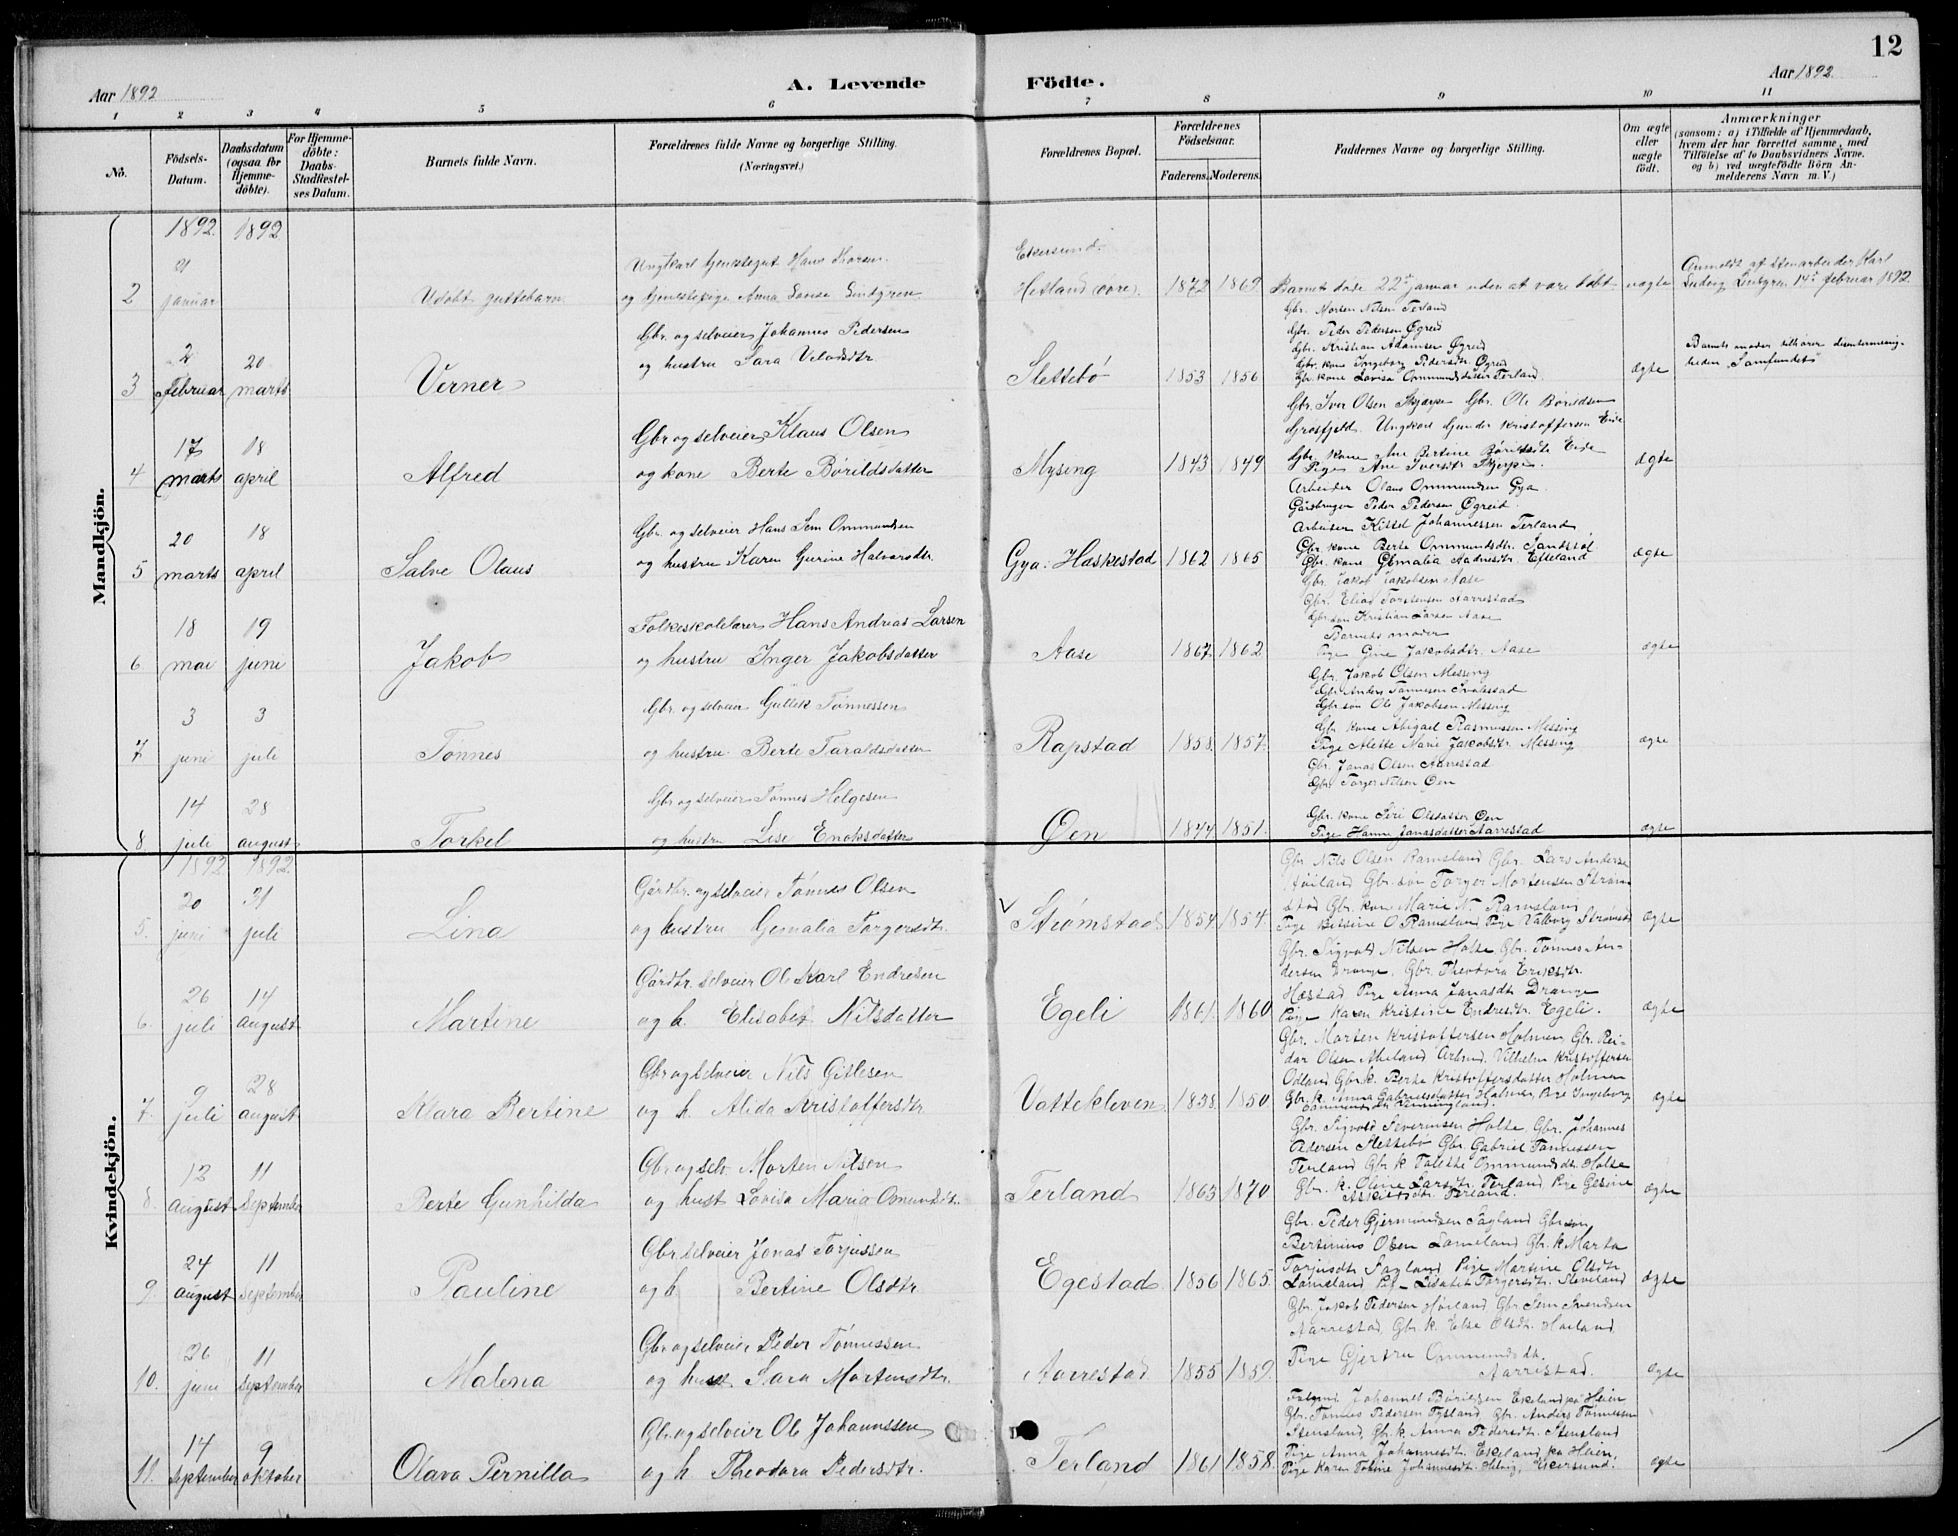 12
Aar 1892
A. Levende Födte.
Aar 1892
1 2 3 4 5 6 7 8 9 10 11
No.
Födsels-Datum.
Daabsdatum (ogsaa for Hjemmedöbte).
For Hjemmedöbte: Daabs-Stadfæstelses Datum.
Barnets fulde Navn.
Forældrenes fulde Navne og borgerlige Stilling. (Næringsvei.)
Forældrenes Bopæl.
Forældrenes Födselsaar. Faderens. Moderens.
Faddernes Navne og borgerlige Stilling.
Om ægte eller uægte födt.
Anmærkninger (saasom: a) i Tilfælde af Hjemmedaab, hvem der har forrettet samme, med Tilföielse af to Daabsvidners Navne, og b) ved uægtefödte Börn Anmelderens Navn m. V.)
Mandkjön.
1892. 1892
2 21 januar
Udøbt guttebarn
Ungkarl tjenestegut Hans Larsen
og tjenestepige Anna Lovise Lindgren
Ekersund
Hetland (øvre) 1872 1869
Barnet døde 22de januar uden at være døbt
uægte
Anmeldt af stenarbeider Karl
Ludvig Lindgren 14de februar 1892.
3 2 februar 20 marts
Verner
Gbr. og selveier Johannes Pedersen
og hustru Sara Velodsdtr
Slettebø 1853 1856
Gbr. Morten Nilsen Terland
Gbr. Peder Pedersen Øgreid
Gbr. Kristian Adamsen Øgreid
Gbr. kone Ingeborg Pedersdtr. Øgreid
Gbr. kone Lovisa Ommundsdatter Terland.
ægte
Barnets moder tilhører dissentermenigheden "Samfundet"
4 17 marts 18 april
Alfred
Gbr. og selveier Klaus Olsen
og kone Berte Børildsdatter
Mysing 1843 1849
Gbr. Iver Olsen Skjærpe Gbr. Ole Børildsen
Grosfjeld. Ungkarl Gunder Kristoffersen Eide
Gbr. kone Ane Bertine Børildsdtr Eide
Pige Ane Iversdtr Skjerpe.
ægte
5 20 marts 18 april
Salve Olaus
Gbr. og selveier Hans Sem Ommundsen
og hustru Karen Gurine Halvorsdtr.
Gya. Heskestad 1862 1865
Arbeider Olaus Ommundsen Gya.
Gårdbruger Peder Pedersen Øgreid
Arbeider Kittel Johannessen Terland
Gbr. kone Berte Ommundsdtr. Sandstøl
Gbr. kone Gemalia Aadnesdtr. Efteland
ægte
6 18 mai 19 juni
Jakob
Folkeskolelærer Hans Andreas Larsen
og hustru Inger Jakobsdatter
Aase 1867. 1862
Gbr. Jakob Jakobsen Aase
Gbr. Elias Torstensen Aarrestad
Gbr. søn Kristian Larsen Aase
Barnets moder
Pige Gine Jakobsdtr. Aase
ægte
7 3 juni 3 juli
Tønnes
Gbr. og selveier Gullek Tønnessen
og hustru Berte Taraldsdatter
Rapstad 1858. 1857.
Gbr. Jakob Olsen Messing
Gbr. Anders Tønnesen Svalestad
Gbr. søn Ole Jakobsen Messing
Gbr. kone Abigael Rasmussen Messing
Pige Alette Marie Jakobsdtr. Messing
ægte
8 14 juli 28 august
Torkel
Gbr og selveier Tønnes Helgesen
og hustru Lise Enoksdatter
Øen 1844 1851.
Gbr. Jonas Olsen Aarrestad
Gbr. Torger Nilsen Øen
Gbr. kone Siri Olsdatter Øen
Pige Hanne Jonasdatter Aarrestad
ægte
Kvindekjön.
1892. 1892.
5. 20 juni 31 juli
Lina
Gårdbr. og selveier Tønnes Olsen
og hustru Gemalia Torgersdtr.
Strømstad 1854 1854.
Gbr Nils Olsen Ramsland Gbr. Lars Anderse
Høiland Gbr. søn Torger Mortensen Strøm
stad Gbr. kone Marie N. Ramsland
Pige Bitsine O Ramsland Pige Valborg Strømstd
ægte
6. 26 juli 14 august
Martine
Gårdbr. selveier Ole Karl Endresen
og h. Elisabet Nilsdatter
Egeli 1861. 1860.
Gbr. Sigvald Nilsen Holte Gbr. Tønnes Andersen Drange. Gbr. Theodora Eriksdtr.
Hæstad Pige Anna Jonasdtr Drange
Pige Karen Kristine Endresdtr Egeli.
ægte
7. 9 juli 28 august
Klara Bertine
Gbr og selveier Nils Gitlesen
og h. Alida Kristoffersdtr.
Vattekleven 1858. 1850
Gbr. Morten Kristoffersen Holmen, Gbr. Reidar Olsen Meland Arbeid. Vilhelm Kristoffersen
Odland Gbr. k. Berta Kristoffersdatter Holmen
Gbr. k. Anna Gabrielsdatter Holmen, Pige Ingeborg
ægte
8. 12 august 11 September
Berte Gunhilda
Gbr og selv Morten Nilsen
og hust Lovisa Maria Omundsdtr.
Terland 1863 1870
Gbr. Sigvald Severinsen Holte. Gbr. Johannes
Pedersen Slettebø Gbr. Gabriel Tønnessen
Terland Gbr. k. Talette Ommundsdtr. Holte
Gbr. k. Oline Larsdtr. Terland, Pige Gesine
Terland.
ægte
9. 24 august 11 September
Pauline
Gbr selveier Jonas Torjussen
og h Bertine Olsdtr.
Egestad 1856 1865.
Gbr. Peder Gjermundsen Sagland Gbr. søn
Bertinius Olsen Lomeland Gbr. k. Marta
Torjusdtr Sagland Pige Martine Olsdtr
Lomeland Pige Lisabet Torgersdtr. Steveland
ægte
10. 26 juni 11 September
Malena
Gbr og selveier Peder Tønnessen
og hust Sara Mortensdtr.
Aarrestad 1855 1859.
Gbr. Jakob Pedersen Høiland Gbr Sem Svendsen
Aarrestad Gbr. k. Else Olsdtr. Høiland
Pige Gjertru Ommundsdtr.
Aarrestad.
ægte
11. 14 September 9 oktober
Olava Pernilla
Gbr og selveier Ole Johannssen
og h Theodora Pedersdtr.
Terland 1861 1858.
Johannes Børildsen Eskeland på Heien
Gbr. Tønnes Pedersen Tysland, Gbr. Anders Tønnessen
Stensland, Gbr. k Anna Pedersdtr. Stensland
Pige Anna Johannesdtr. Eskeland på Heien
Pige Karen Tobine Johannesdtr. Ekersund.
ægte